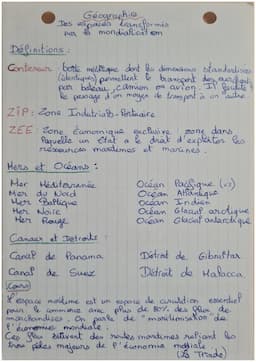 Géographie
Des espaces transformés
par la mondialisation
Définitions :
Conteneur : boîte métallique dont les dimensions standardisées
(identiques) permettent le transport des marchandises
par bateau, camion ou avion. Il facilite
le passage d'un moyen de transport à un autre.
ZIP : Zone Industrialo-Portuaire
ZEE : Zone économique exclusive : zone dans
laquelle un état a le droit d'exploiter les
ressources maritimes et marines.
Mers et Océans :
Mer Méditerranée Océan Pacifique (x2)
Mer du Nord Océan Atlantique
Mer Baltique Océan Indien
Mer Noire Océan Glacial arctique
Mer Rouge Océan Glacial antarctique
Canaux et Détroits :
Canal de Panama Détroit de Gibraltar
Canal de Suez Détroit de Malacca
Cours
L'espace maritime est un espace de circulation essentiel
pour le commerce avec plus de 80% des flux de
marchandises. On parle de "maritimisation de
l'économie mondiale".
Ces flux suivent des routes maritimes reliant les
trois pôles majeurs de l'économie mondiale :
(La Triade)